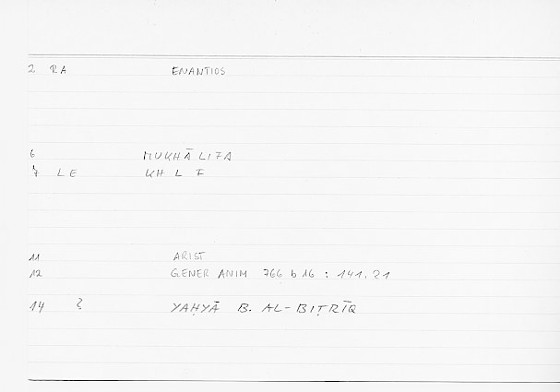 2 RA ENANTIOS
6 MUKHĀLIFA
7 LE KH L F
11 ARIST
12 GENER ANIM 766 b 16 : 141.21
14 YAḤYĀ B. AL-BIṬRĪQ